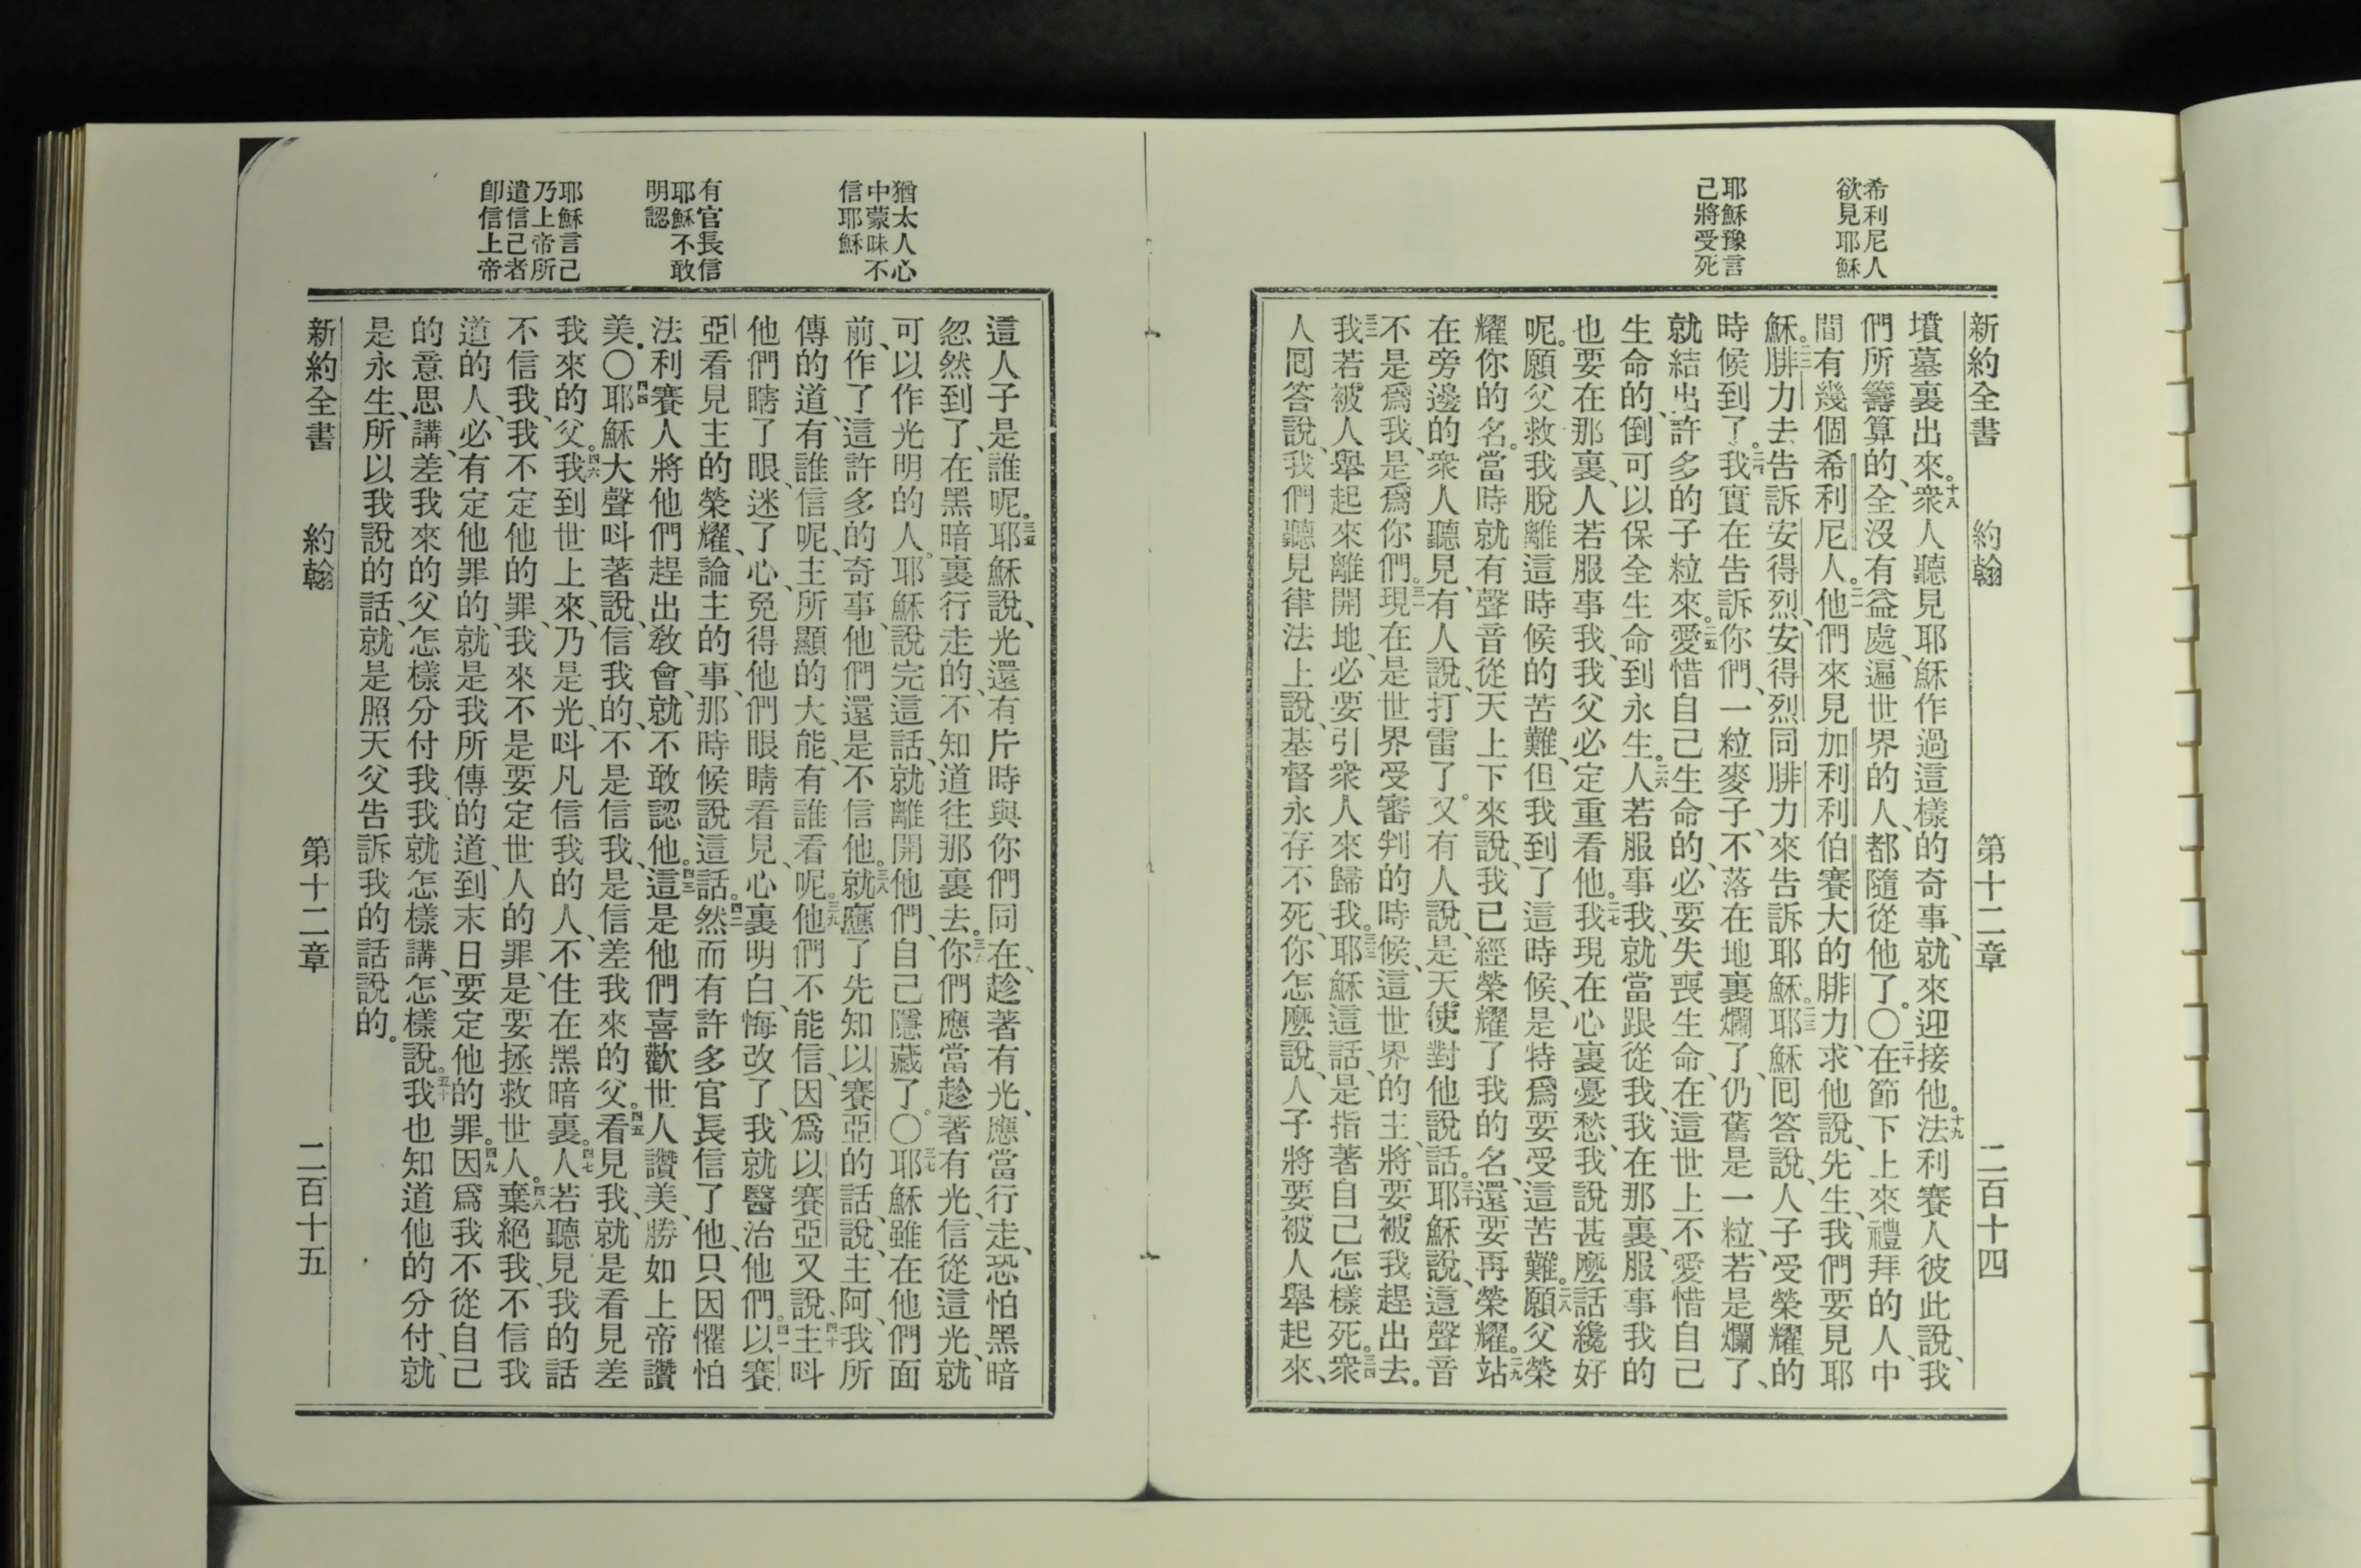 希利尼人
欲見耶穌
耶穌豫言
己將受死
新約全書 約翰 第十二章 二百十四
墳墓裏出來。十八衆人聽見耶穌作過這樣的奇事、就來迎接他。十九法利賽人彼此說、我
們所籌算的、全沒有益處、遍世界的人、都隨從他了。〇二十在節下上來禮拜的人、中
間有幾個希利尼人。二一他們來見加利利伯賽大的腓力、求他說、先生、我們要見耶
穌。二二腓力去告訴安得烈、安得烈同腓力來告訴耶穌。二三耶穌囘答說、人子受榮耀的
時候到了。二四我實在告訴你們、一粒麥子、不落在地裏爛了、仍舊是一粒、若是爛了、
就結出許多的子粒來。二五愛惜自己生命的、必要失喪生命、在這世上不愛惜自己
生命的、倒可以保全生命到永生。二六人若服事我、就當跟從我、我在那裏、服事我的
也要在那裏、人若服事我、我父必定重看他。二七我現在心裏憂愁、我說甚麼話纔好
呢。願父救我脫離這時候的苦難、但我到了這時候、是特爲要受這苦難。二八願父榮
耀你的名。當時就有聲音從天上下來說、我已經榮耀了我的名、還要再榮耀。二九站
在旁邊的衆人聽見、有人說、打雷了。又有人說、是天使對他說話。三十耶穌說、這聲音
不是爲我、是爲你們。三一現在是世界受審判的時候、這世界的主、將要被我趕出去。
三二我若被人舉起來離開地、必要引衆人來歸我。三三耶穌這話、是指著自己怎樣死。三四衆
人囘答說、我們聽見律法上說、基督永存不死、你怎麼說、人子將要被人舉起來、
猶太人心
中蒙昧不
信耶穌
有官長信
耶穌不敢
明認
耶穌言己
乃上帝所
遣信己者
卽信上帝
這人子是誰呢。三五耶穌說、光還有片時與你們同在、趁著有光、應當行走、恐怕黑暗
忽然到了、在黑暗裏行走的、不知道往那裏去。三六你們應當趁著有光、信從這光、就
可以作光明的人。耶穌說完這話、就離開他們、自己隱藏了。〇三七耶穌雖在他們面
前、作了這許多的奇事、他們還是不信他。三八就應了先知以賽亞的話、說、主阿、我所
傳的道、有誰信呢、主所顯的大能、有誰看呢。三九他們不能信、因爲以賽亞又說、四十主呌
他們瞎了眼、迷了心、免得他們眼睛看見、心裏明白、悔改了、我就醫治他們。四一以賽
亞看見主的榮耀、論主的事、那時候說這話。四二然而有許多官長信了他、只因懼怕
法利賽人將他們趕出敎會、就不敢認他。四三這是他們喜歡世人讚美、勝如上帝讚
美。〇四四耶穌大聲呌著說、信我的、不是信我、是信差我來的父。四五看見我、就是看見差
我來的父。四六我到世上來、乃是光、呌凡信我的人、不住在黑暗裏。四七人若聽見我的話
不信我、我不定他的罪、我來不是要定世人的罪、是要拯救世人。四八棄絕我、不信我
道的人、必有定他罪的、就是我所傳的道、到末日要定他的罪。四九因爲我不從自己
的意思講、差我來的父怎樣分付我、我就怎樣講、怎樣說。五十我也知道他的分付、就
是永生、所以我說的話、就是照天父告訴我的話說的。
新約全書 約翰 第十二章 二百十五